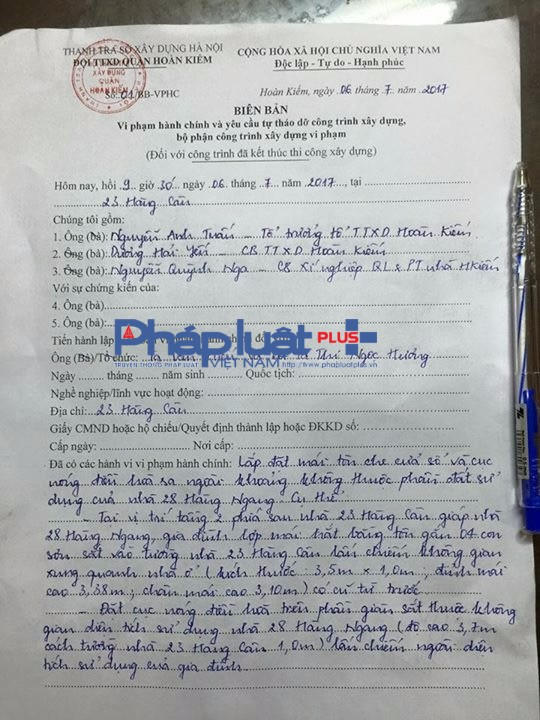 THANH TRA SỞ XÂY DỰNG HÀ NỘI
ĐỘI TTXD QUẬN HOÀN KIẾM
CỘNG HÒA XÃ HỘI CHỦ NGHĨA VIỆT NAM
Độc lập - Tự do - Hạnh phúc
XÂY DỰNG
QUẬN
HOÀN KIẾM
Số: 01/BB-VPHC
Hoàn Kiếm, ngày 06 tháng 7 năm 2017
BIÊN BẢN
Vi phạm hành chính và yêu cầu tự tháo dỡ công trình xây dựng,
bộ phận công trình xây dựng vi phạm
(Đối với công trình đã kết thúc thi công xây dựng)
Hôm nay, hồi 9 giờ 30 ngày 06 tháng 7 năm 2017, tại
23 Hàng Cân
Chúng tôi gồm:
1. Ông (bà): Nguyễn Anh Tuấn - Tổ trưởng tổ TTXD Hoàn Kiếm
2. Ông (bà): Dương Hải Yến - CB TTXD Hoàn Kiếm
3. Ông (bà): Nguyễn Quỳnh Nga - CB Xí nghiệp QL & PT nhà HKiếm
Với sự chứng kiến của:
4. Ông (bà)
5. Ông (bà)
Pháp luật PLUS
TRUYỀN THÔNG PHÁP LUẬT VIỆT NAM http://www.phapluatplus.vn
Tiến hành lập vi phạm hành chính đối với
Ông (Bà)/Tổ chức: Tạ Văn và bà Tạ Thị Ngọc Hương
Ngày tháng năm sinh Quốc tịch:
Nghề nghiệp/lĩnh vực hoạt động:
Địa chỉ: 23 Hàng Cân
Giấy CMND hoặc hộ chiếu/Quyết định thành lập hoặc ĐKKD số:
Cấp ngày: Nơi cấp:
Đã có các hành vi vi phạm hành chính: Lắp đặt mái tôn che cửa sổ và cục
nóng điều hòa ra ngoài khoảng không thuộc phần đất sử
dụng của nhà 28 Hàng Ngang. Cụ thể:
- Tại vị trí tầng 2 phía sau nhà 23 Hàng Cân giáp nhà
28 Hàng Ngang, gia đình lợp mái hắt bằng tôn gắn 04 con
sơn sắt vào tường nhà 23 Hàng Cân lấn chiếm không gian
xung quanh nhà ở (kích thước: 3,5m x 1,0m; đỉnh mái
cao 3,38m; chân mái cao 3,10m) có cũ từ trước.
- Đặt cục nóng điều hòa trên phần giàn sắt thuộc không
gian diện tích sử dụng nhà 28 Hàng Ngang (độ cao 3,7m
cách tường nhà 23 Hàng Cân 1,0m) lấn chiếm ngoài diện
tích sử dụng của gia đình.